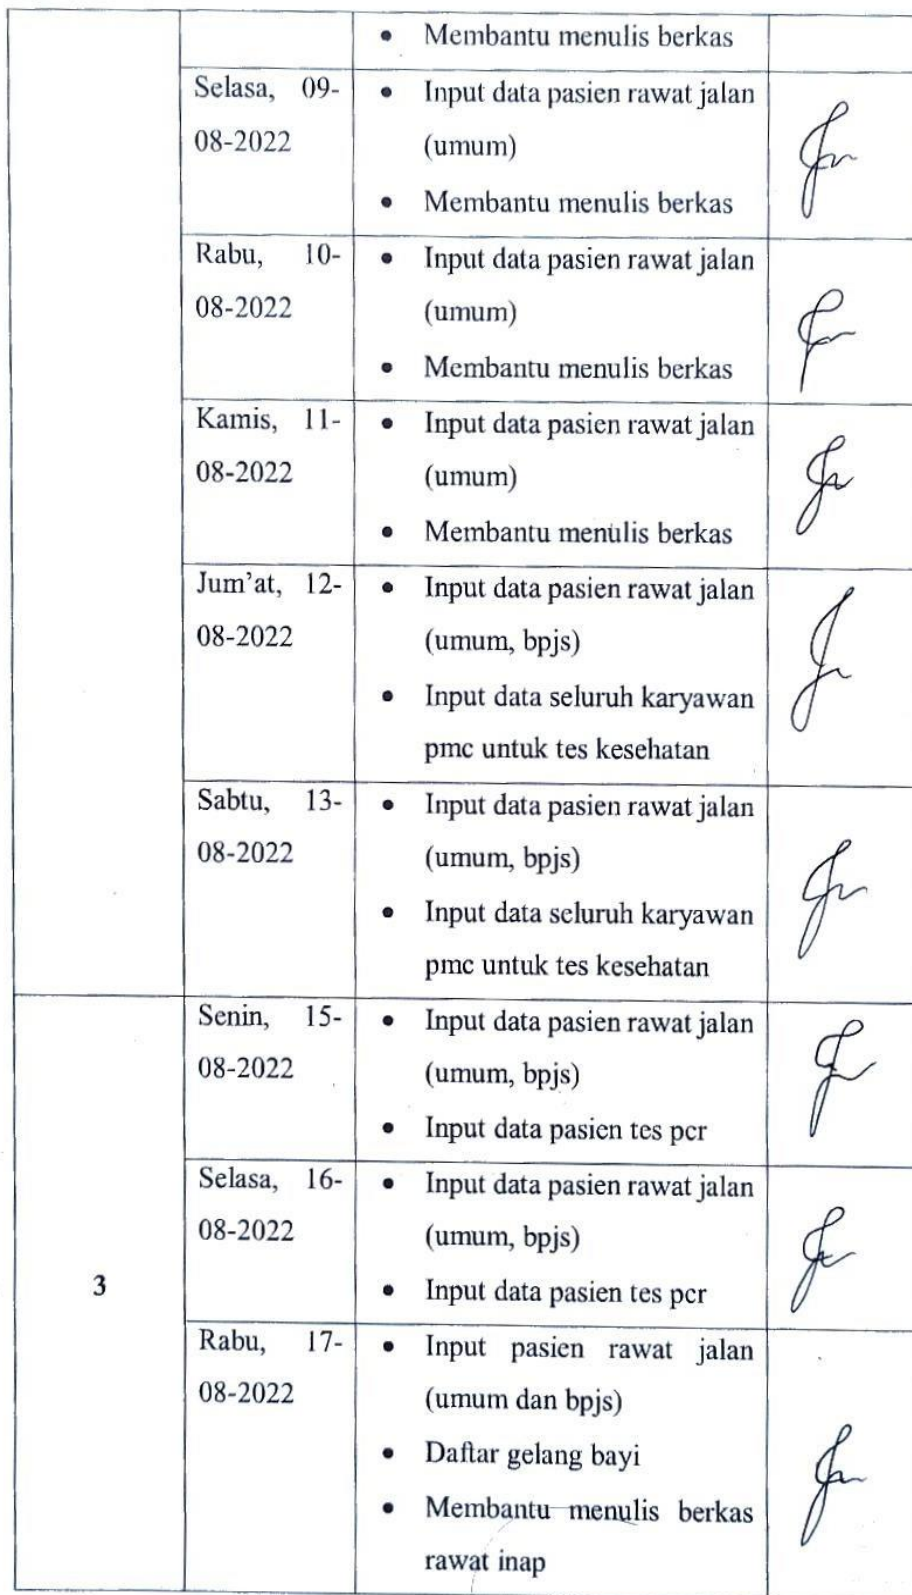 • Membantu menulis berkas
Selasa, 09-
08-2022
• Input data pasien rawat jalan
(umum)
• Membantu menulis berkas
Rabu, 10-
08-2022
• Input data pasien rawat jalan
(umum)
• Membantu menulis berkas
Kamis, 11-
08-2022
• Input data pasien rawat jalan
(umum)
• Membantu menulis berkas
Jum'at, 12-
08-2022
• Input data pasien rawat jalan
(umum, bpjs)
• Input data seluruh karyawan
pmc untuk tes kesehatan
Sabtu, 13-
08-2022
• Input data pasien rawat jalan
(umum, bpjs)
• Input data seluruh karyawan
pmc untuk tes kesehatan
3
Senin, 15-
08-2022
• Input data pasien rawat jalan
(umum, bpjs)
• Input data pasien tes pcr
Selasa, 16-
08-2022
• Input data pasien rawat jalan
(umum, bpjs)
• Input data pasien tes pcr
Rabu, 17-
08-2022
• Input pasien rawat jalan
(umum dan bpjs)
• Daftar gelang bayi
• Membantu menulis berkas
rawat inap